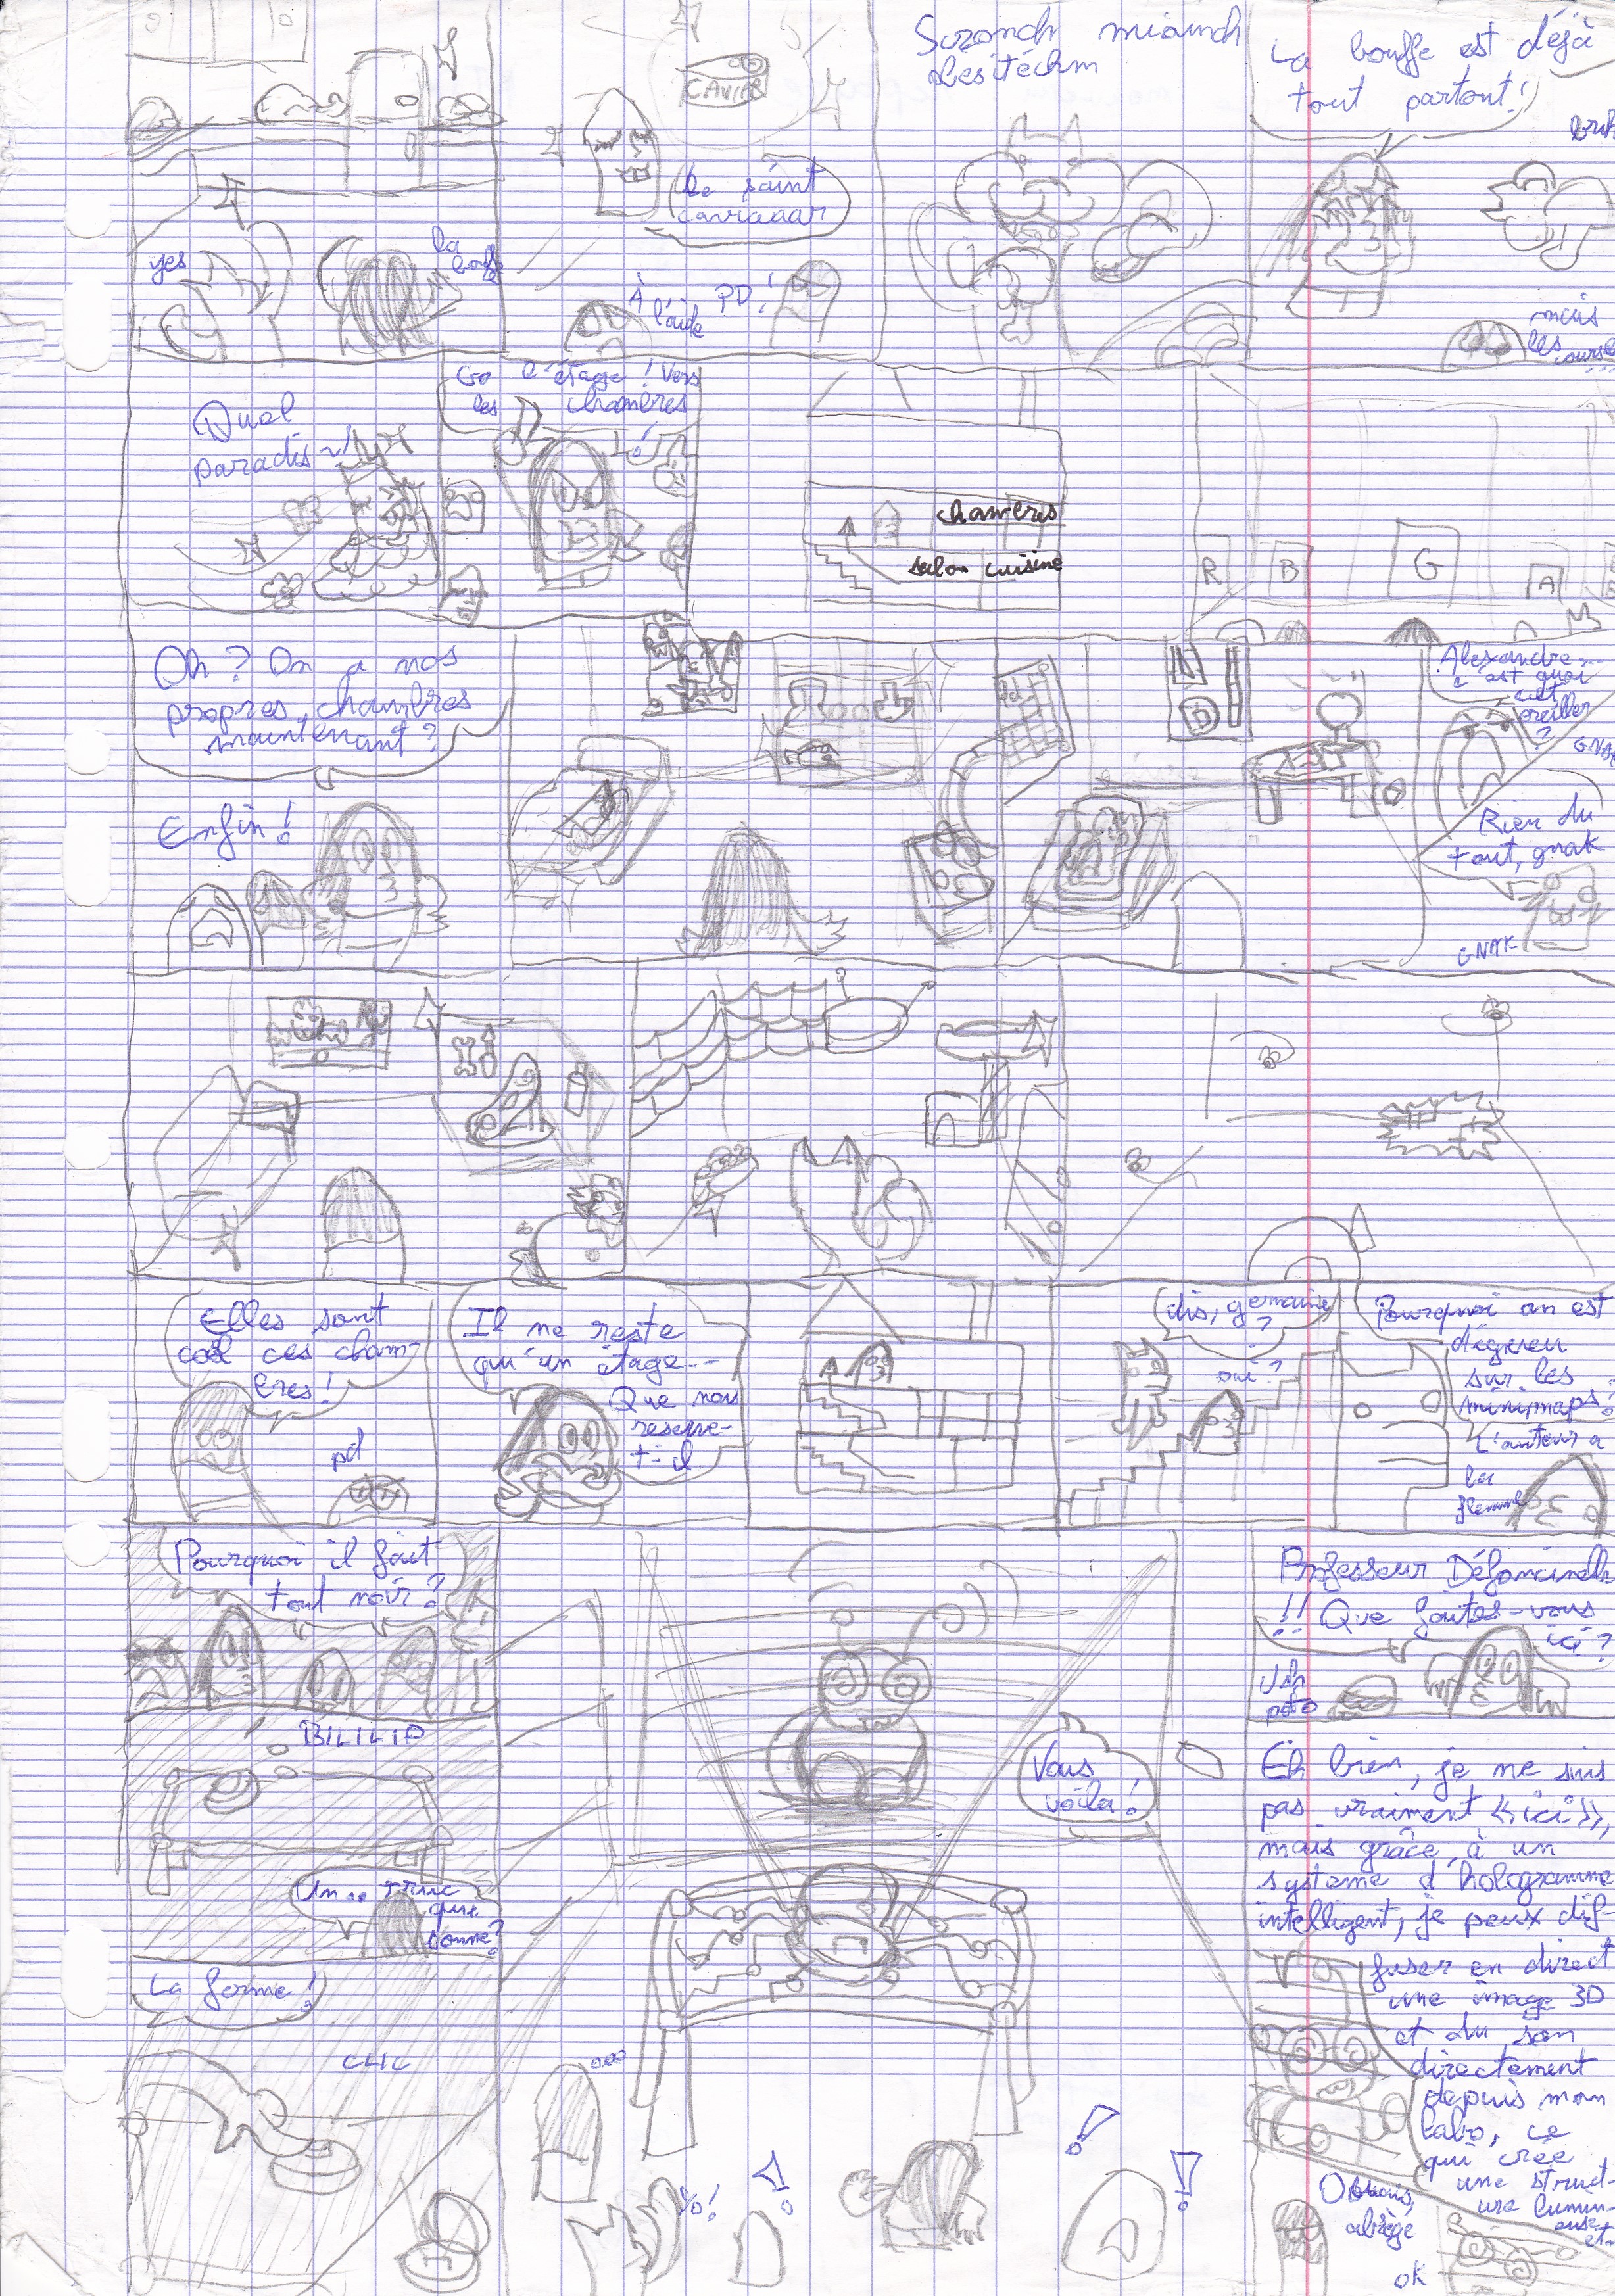 CAVIAR
Le saint
caviaaar
yes
la
bouffe
À
l'aide
PD !
Scronch miainch
La bouffe est déjà
tout partout !
mais
les
Quel
paradis ~!
Go l'étage ! Vers
les chambres
chambres
salon cuisine
R
B
G
A
Oh ? On a nos
propres chambres
maintenant ?
Enfin !
Alexandre...
c'est quoi
cet
oreiller
?
GNAK
Rien du
tout, gnak
GNAK
Elles sont
cool ces cham-
bres !
pd
Il ne reste
qu'un étage...
Que nous
réserve-
t-il
dis, germaine
?
oui ?
Pourquoi on est
dégueu
sur les
minimaps ?
L'auteur a
la
flemme
Pourquoi il fait
tout noir ?
BILILIP
Un... truc
qui
donne ?
La forme !
CLIC
Vous
voilà !
...
Professeur
!! Que faites-vous
ici ?
Un
Eh bien, je ne suis
pas vraiment « ici »,
mais grâce à un
système d'hologramme
intelligent, je peux dif-
fuser en direct
une image 3D
et du son
directement
depuis mon
labo, ce
qui crée
une struct-
ure lumin-
euse
et..
abrège
ok